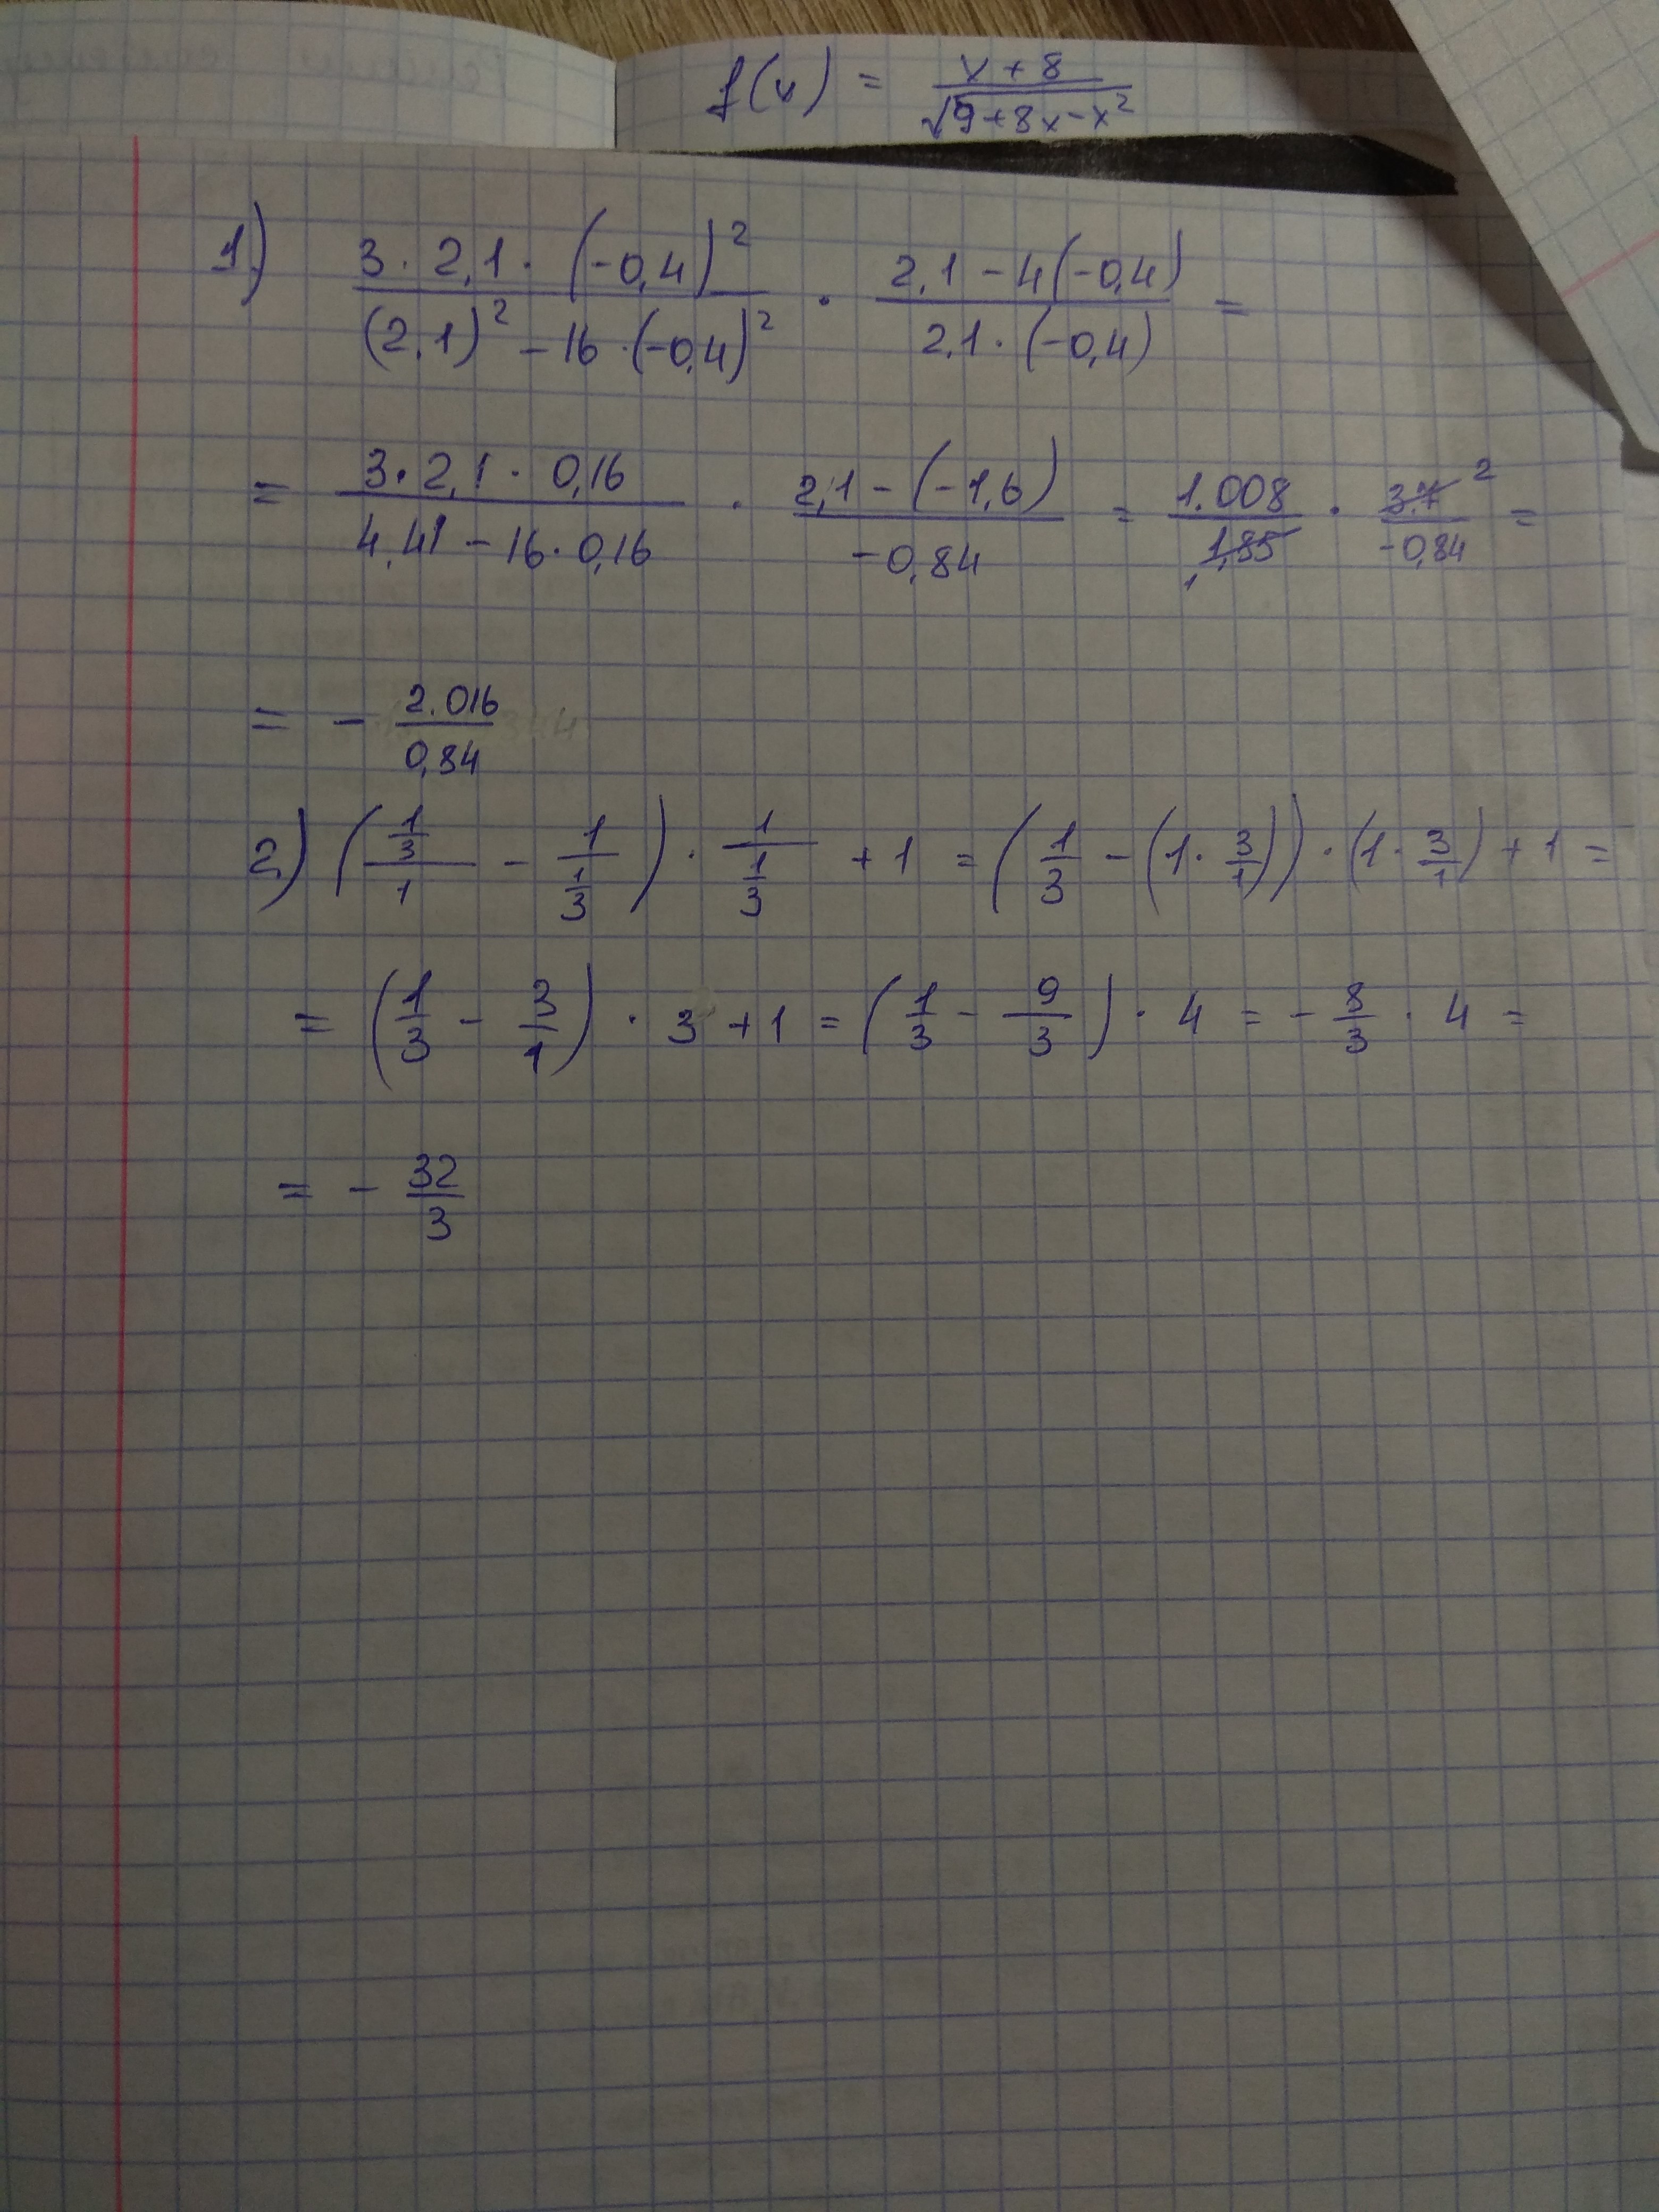 f(x) = (x + 8)/(√9+8x-x²)
1) (3 · 2,1 · (-0,4)²)/((2,1)² - 16 · (-0,4)²) · (2,1 - 4(-0,4))/(2,1 · (-0,4)) =
= (3 · 2,1 · 0,16)/(4,41 - 16 · 0,16) · (2,1 - (-1,6))/(-0,84) = 1.008/1,85 · 3.7/-0,84 =
= - 2.016/0,84
2) ((1/3)/1 - 1/(1/3)) · 1/(1/3) + 1 = (1/3 - (1 · 3/1)) · (1 · 3/1) + 1 =
= (1/3 - 3/1) · 3 + 1 = (1/3 - 9/3) · 4 = - 8/3 · 4 =
= - 32/3